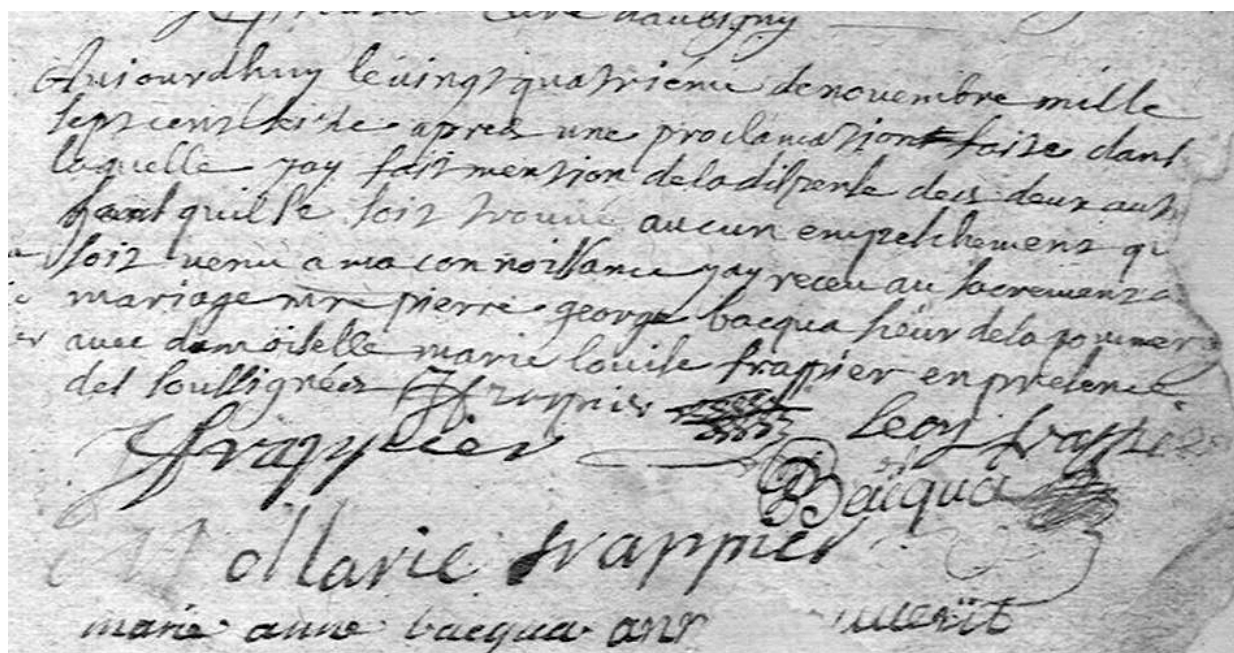 curé daubigny
Aujourdhuy le vingt quatrieme de novembre mille
sept cent seise apres une proclamation faite dans
laquelle jay fait mention de la dispense des deux autr
sans quil se soit trouvé aucun empeschement qu
soit venu a ma connoissance jay receu au sacrement
mariage mre pierre george bacqua sieur de la pommer
avec damoiselle marie louise frappier en presence
des soussignées frappier
frappier leon frappier
Bacqua
Marie frappier
marie anne bacqua